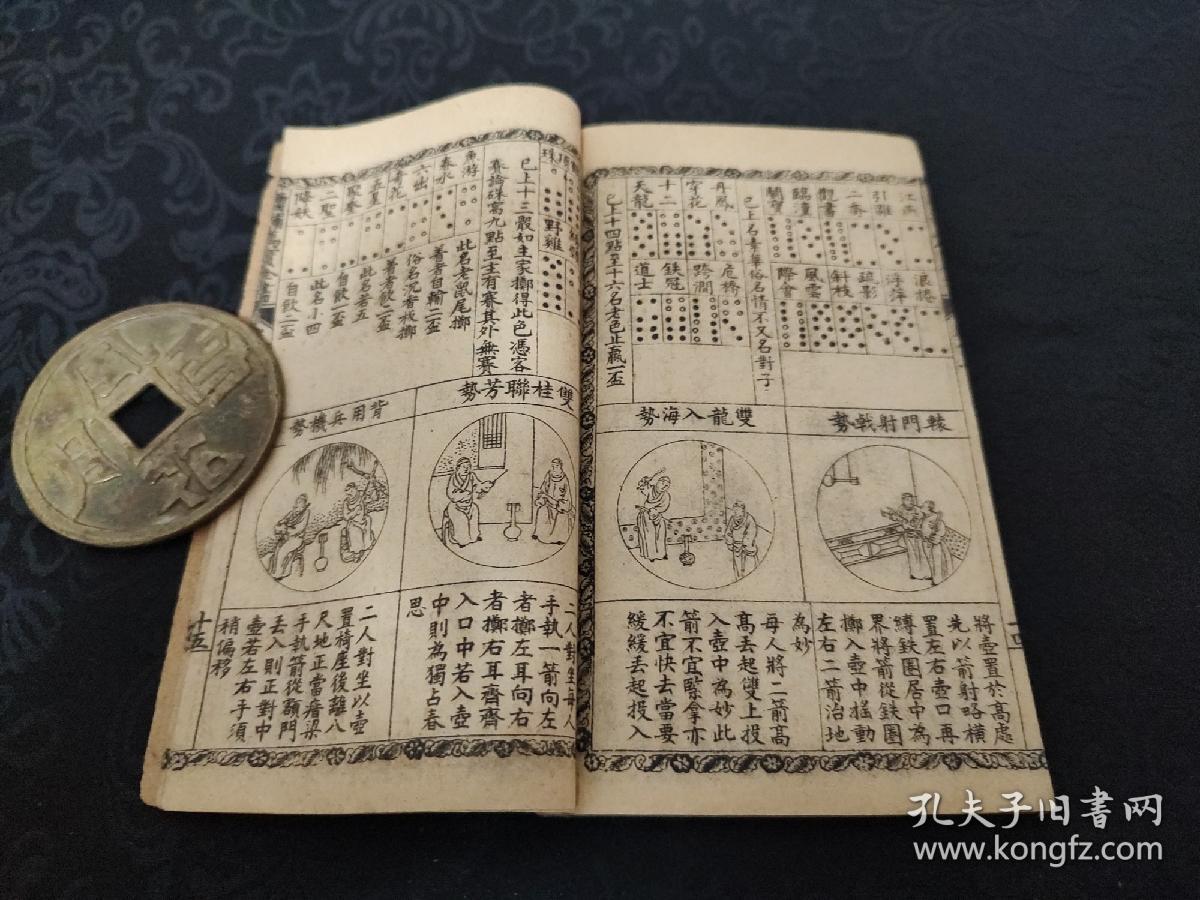 江燕
引雛
二奇
觀書
臨潼
鬪寶
浪捲
浮萍
疏影
斜枝
風雲
際會
已上名幸華俗名情不又名對子
丹鳳
穿花
十二
天龍
危橋
跨澗
鐵冠
道士
已上十四點至十六名老色止贏一盃
轅門射戟勢
雙龍入海勢
將壺置於高處
先以箭射略橫
置左右壺口再
縛鉄圈居中為
界將箭從鉄圈
擲入壺中搖動
左右二箭治地
為妙
每人將二箭高
高丟起雙上投
入壺中為妙此
箭不宜緊拿亦
不宜快去當要
緩緩丟起投入
珠
野雞
已上十三骰如主家擲得此色憑客
賽論硃窩九點至主有賽其外無賽
魚游
春水
六出
奇花
五星
聚奎
二聖
降妖
此名老鼠尾擲
著者自輸二盃
俗名沉香板擲
著者飲一盃
此名若五
自飲一盃
此名小四
自飲二盃
雙桂聯芳勢
背用兵機勢
二人對坐每人
手執一箭向左
者擲左耳向右
者擲右耳齊齊
入口中若入壺
中則為獨占春
思
二人對坐以壺
置椅座後離八
尺地正當脊梁
手執箭從額門
丟入則正對中
壺若左右手須
稍偏移
十五
孔夫子旧书网
www.kongfz.com